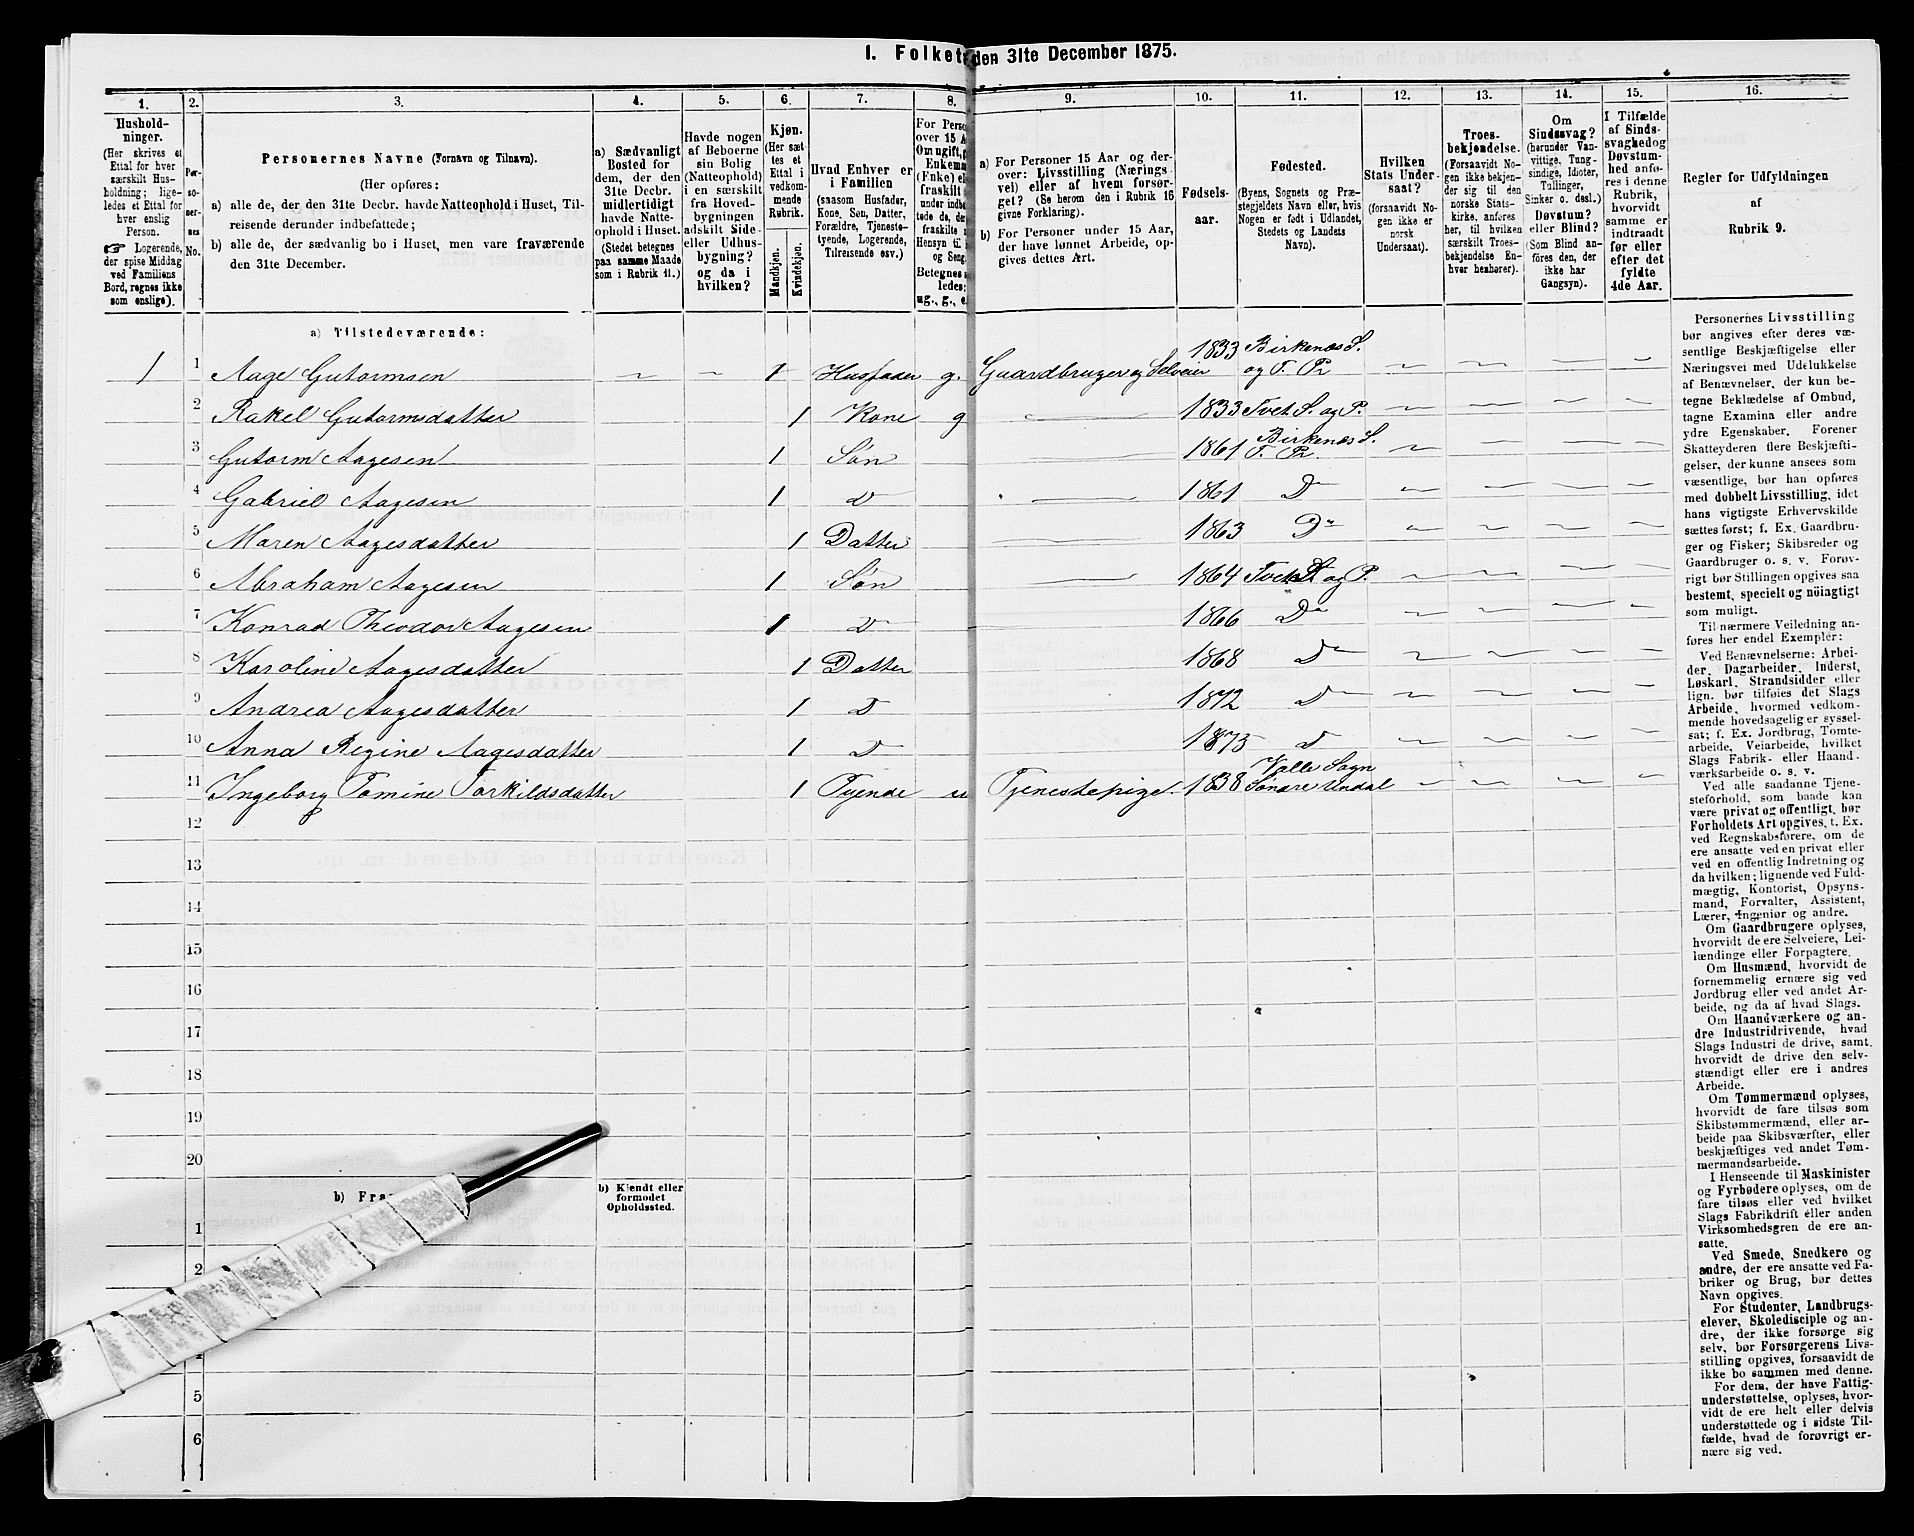 I. Folket den 31te December 1875.
1. 2. 3. 4. 5. 6. 7. 8. 9. 10. 11. 12. 13. 14. 15. 16.
Hushold-
ninger.
(Her skrives et
Ettal for hver
særskilt Hus-
holdning; lige-
ledes et Ettal for
hver enslig
Person.
☞ Logerende,
der spise Middag
ved Familiens
Bord, regnes ikke
som enslige).
Per-
so-
ner-
nes
No.
Personernes Navne (Fornavn og Tilnavn).
(Her opføres:
a) alle de, der den 31te Decbr. havde Natteophold i Huset, Til-
reisende derunder indbefattede;
b) alle de, der sædvanlig bo i Huset, men vare fraværende
den 31te December.
a) Sædvanligt
Bosted for
dem, der den
31te Decbr.
midlertidigt
havde Natte-
ophold i Huset.
(Stedet betegnes
paa samme Maade
som i Rubrik 11.)
Havde nogen
af Beboerne
sin Bolig
(Natteophold)
i en særskilt
fra Hoved-
bygningen
adskilt Side-
eller Udhus-
bygning?
og da i
hvilken?
Kjøn.
(Her sæt-
tes et
Ettal i
vedkom-
mende
Rubrik.
Mandkjøn.
Kvindekjøn.
Hvad Enhver er
i Familien
(saasom Husfader,
Kone, Søn, Datter,
Forældre, Tjeneste-
tyende, Logerende,
Tilreisende osv.)
For Perso
over 15 A
Om ugift,
Enkema
(Enke) el
fraskilt
under indbe
tede de, de
fraskilte
Hensyn til
og Seng
Betegnes
ledes;
ug., g., e.
a) For Personer 15 Aar og der-
over: Livsstilling (Nærings-
vei) eller af hvem forsør-
get? (Se herom den i Rubrik 16
givne Forklaring).
b) For Personer under 15 Aar,
der have lønnet Arbeide, op-
gives dettes Art.
Fødsels-
aar.
Fødested.
(Byens, Sognets og Præ-
stegjeldets Navn eller, hvis
Nogen er født i Udlandet,
Stedets og Landets
Navn).
Hvilken
Stats Under-
saat?
(forsaavidt No-
gen ikke er
norsk
Undersaat).
Troes-
bekjendelse.
(Forsaavidt No-
gen ikke bekjen-
der sig til den
norske Stats-
kirke, anføres
her, til hvilken
særskilt Troes-
bekjendelse En-
hver henhører).
Om
Sindssvag?
(herunder Van-
vittige, Tung-
sindige, Idioter,
Tullinger,
Sinker o. desl.)
Døvstum?
eller Blind?
(Som Blind an-
føres den, der
ikke har
Gangsyn).
I Tilfælde
af Sinds-
svaghed og
Døvstum-
hed anfø-
res i denne
Rubrik,
hvorvidt
samme er
indtraadt
før eller
efter det
fyldte
4de Aar.
Regler for Udfyldningen
af
Rubrik 9.
a) Tilstedeværende:
1 1 Aage Gutormsen 1 Husfader g. Gaardbruger og Selveier 1833 Birkenæs S. og T. Pr
2 Rakel Gutormsdatter 1 Kone g 1833 Tvet S. og P.
3 Gutorm Aagesen 1 Søn 1861 Birkenæs S. T. Pr.
4 Gabriel Aagesen 1 D 1861 Do
5 Maren Aagesdatter 1 Datter 1863 Do
6 Abraham Aagesen 1 Søn 1864 Tvet S. og P.
7 Konrad Theodor Aagesen 1 D 1866 Do
8 Karoline Aagesdatter 1 Datter 1868 Do
9 Andrea Aagesdatter 1 D 1872 Do
10 Anna Regine Aagesdatter 1 D 1873 D
11 Ingeborg Tomine Torkildsdatter 1 Tyende u Tjenestepige. 1838 Valle Sogn Søndre Undal
12
13
14
15
16
17
18
19
20
b) Fra
b) Kjendt eller
formodet
Opholdssted.
1
2
5
6
Personernes Livsstilling
bør angives efter deres væ-
sentlige Beskjæftigelse eller
Næringsvei med Udelukkelse
af Benævnelser, der kun be-
tegne Beklædelse af Ombud,
tagne Examina eller andre
ydre Egenskaber. Forener
Skatteyderen flere Beskjæfti-
gelser, der kunne ansees som
væsentlige, bør han opføres
med dobbelt Livsstilling, idet
hans vigtigste Erhvervskilde
sættes først; f. Ex. Gaardbru-
ger og Fisker; Skibsreder og
Gaardbruger o. s. v. Forøv-
rigt bør Stillingen opgives saa
bestemt, specielt og nöiagtigt
som muligt.
Til nærmere Veiledning an-
føres her endel Exempler:
Ved Benævnelserne: Arbei-
der, Dagarbeider, Inderst,
Løskarl, Strandsidder eller
lign. bør tilføies det Slags
Arbeide, hvormed vedkom-
mende hovedsagelig er syssel-
sat; f. Ex. Jordbrug, Tomte-
arbeide, Veiarbeide, hvilket
Slags Fabrik- eller Haand-
værksarbeide o. s. v.
Ved alle saadanne Tjene-
steforhold, som baade kan
være privat og offentligt, bør
Forholdets Art opgives, t. Ex.
ved Regnskabsførere, om de
ere ansatte ved en privat eller
ved en offentlig Indretning og
da hvilken; lignende ved Fuld-
mægtig, Kontorist, Opsyns-
mand, Forvalter, Assistent,
Lærer, Ingeniør og andre.
Om Gaardbrugere oplyses,
hvorvidt de ere Selveiere, Lei-
lændinge eller Forpagtere.
Om Husmænd, hvorvidt de
fornemmelig ernære sig ved
Jordbrug eller ved andet Ar-
beide, og da af hvad Slags.
Om Haandværkere og an-
dre Industridrivende, hvad
Slags Industri de drive, samt
hvorvidt de drive den selv-
stændigt eller ere i andres
Arbeide.
Om Tømmermænd oplyses,
hvorvidt de fare tilsøs som
Skibstømmermænd, eller ar-
beide paa Skibsværfter, eller
beskjæftiges ved andet Tøm-
mermandsarbeide.
I Henseende til Maskinister
og Fyrbødere oplyses, om de
fare tilsøs eller ved hvilket
Slags Fabrikdrift eller anden
Virksomhedsgren de ere an-
satte.
Ved Smede, Snedkere og
andre, der ere ansatte ved Fa-
briker og Brug, bør dettes
Navn opgives.
For Studenter, Landbrugs-
elever, Skoledisciple og an-
dre, der ikke forsørge sig
selv, bør Forsørgerens Livs-
stilling opgives, forsaavidt de
ikke bo sammen med denne.
For dem, der have Fattig-
understøttelse, oplyses, hvor-
vidt de ere helt eller delvis
understøttede og i sidste Til-
fælde, hvad de forøvrigt er-
nære sig ved.